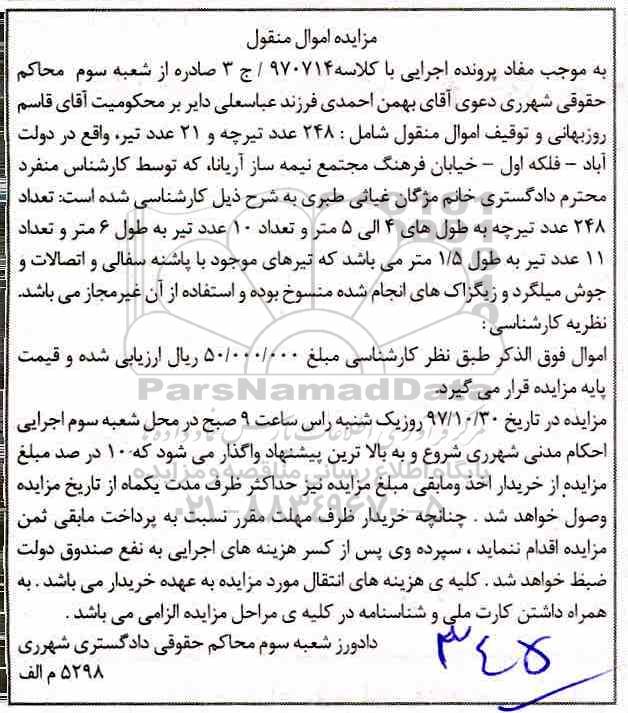 مزایده اموال منقول
به موجب مفاد پرونده اجرایی با کلاسه۹۷۰۷۱۴ / ج ۳ صادره از شعبه سوم محاکم
حقوقی شهرری دعوی آقای بهمن احمدی فرزند عباسعلی دایر بر محکومیت آقای قاسم
روزبهانی و توقیف اموال منقول شامل : ۲۴۸ عدد تیرچه و ۲۱ عدد تیر، واقع در دولت
آباد – فلکه اول – خیابان فرهنگ مجتمع نیمه ساز آریانا، که توسط کارشناس منفرد
محترم دادگستری خانم مژگان غیاثی طبری به شرح ذیل کارشناسی شده است: تعداد
۲۴۸ عدد تیرچه به طول های ۴ الی ۵ متر و تعداد ۱۰ عدد تیر به طول ۶ متر و تعداد
۱۱ عدد تیر به طول ۱/۵ متر می باشد که تیرهای موجود با پاشنه سفالی و اتصالات و
جوش میلگرد و زیگزاک های انجام شده منسوخ بوده و استفاده از آن غیرمجاز می باشد.
نظریه کارشناسی :
اموال فوق الذکر طبق نظر کارشناسی مبلغ ۵۰/۰۰۰/۰۰۰ ریال ارزیابی شده و قیمت
پایه مزایده قرار می گیرد.
ParsNamadData
مزایده در تاریخ ۹۷/۱۰/۳۰ روزیک شنبه راس ساعت ۹ صبح در محل شعبه سوم اجرایی
احکام مدنی شهرری شروع و به بالا ترین پیشنهاد واگذار می شود که ۱۰ در صد مبلغ
پایگاه اطلاع رسانی مناقصه و مزایده
مزایده از خریدار اخذ ومابقی مبلغ مزایده نیز حداکثر ظرف مدت یکماه از تاریخ مزایده
۰۲۱-۸۸۳۴۹۶۷۰-۵
وصول خواهد شد . چنانچه خریدار ظرف مهلت مقرر نسبت به پرداخت مابقی ثمن
مزایده اقدام ننماید ، سپرده وی پس از کسر هزینه های اجرایی به نفع صندوق دولت
ضبط خواهد شد . کلیه ی هزینه های انتقال مورد مزایده به عهده خریدار می باشد . به
همراه داشتن کارت ملی و شناسنامه در کلیه ی مراحل مزایده الزامی می باشد .
دادورز شعبه سوم محاکم حقوقی دادگستری شهرری
۵۲۹۸ م الف